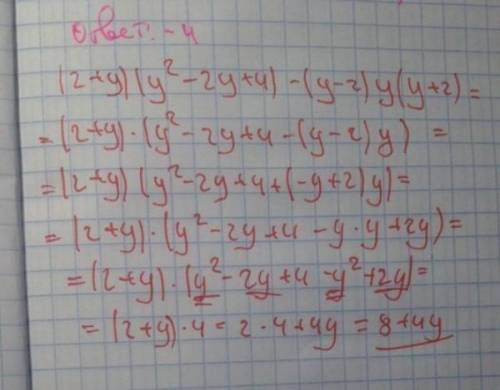 Ответ: -4
(2+y)(y²-2y+4)-(y-2)y(y+2)=
=(2+y)·(y²-2y+4-(y-2)y)=
=(2+y)(y²-2y+4+(-y+2)y)=
=(2+y)·(y²-2y+4-y·y+2y)=
=(2+y)·(y²-2y+4-y²+2y)=
=(2+y)·4=2·4+4y=8+4y